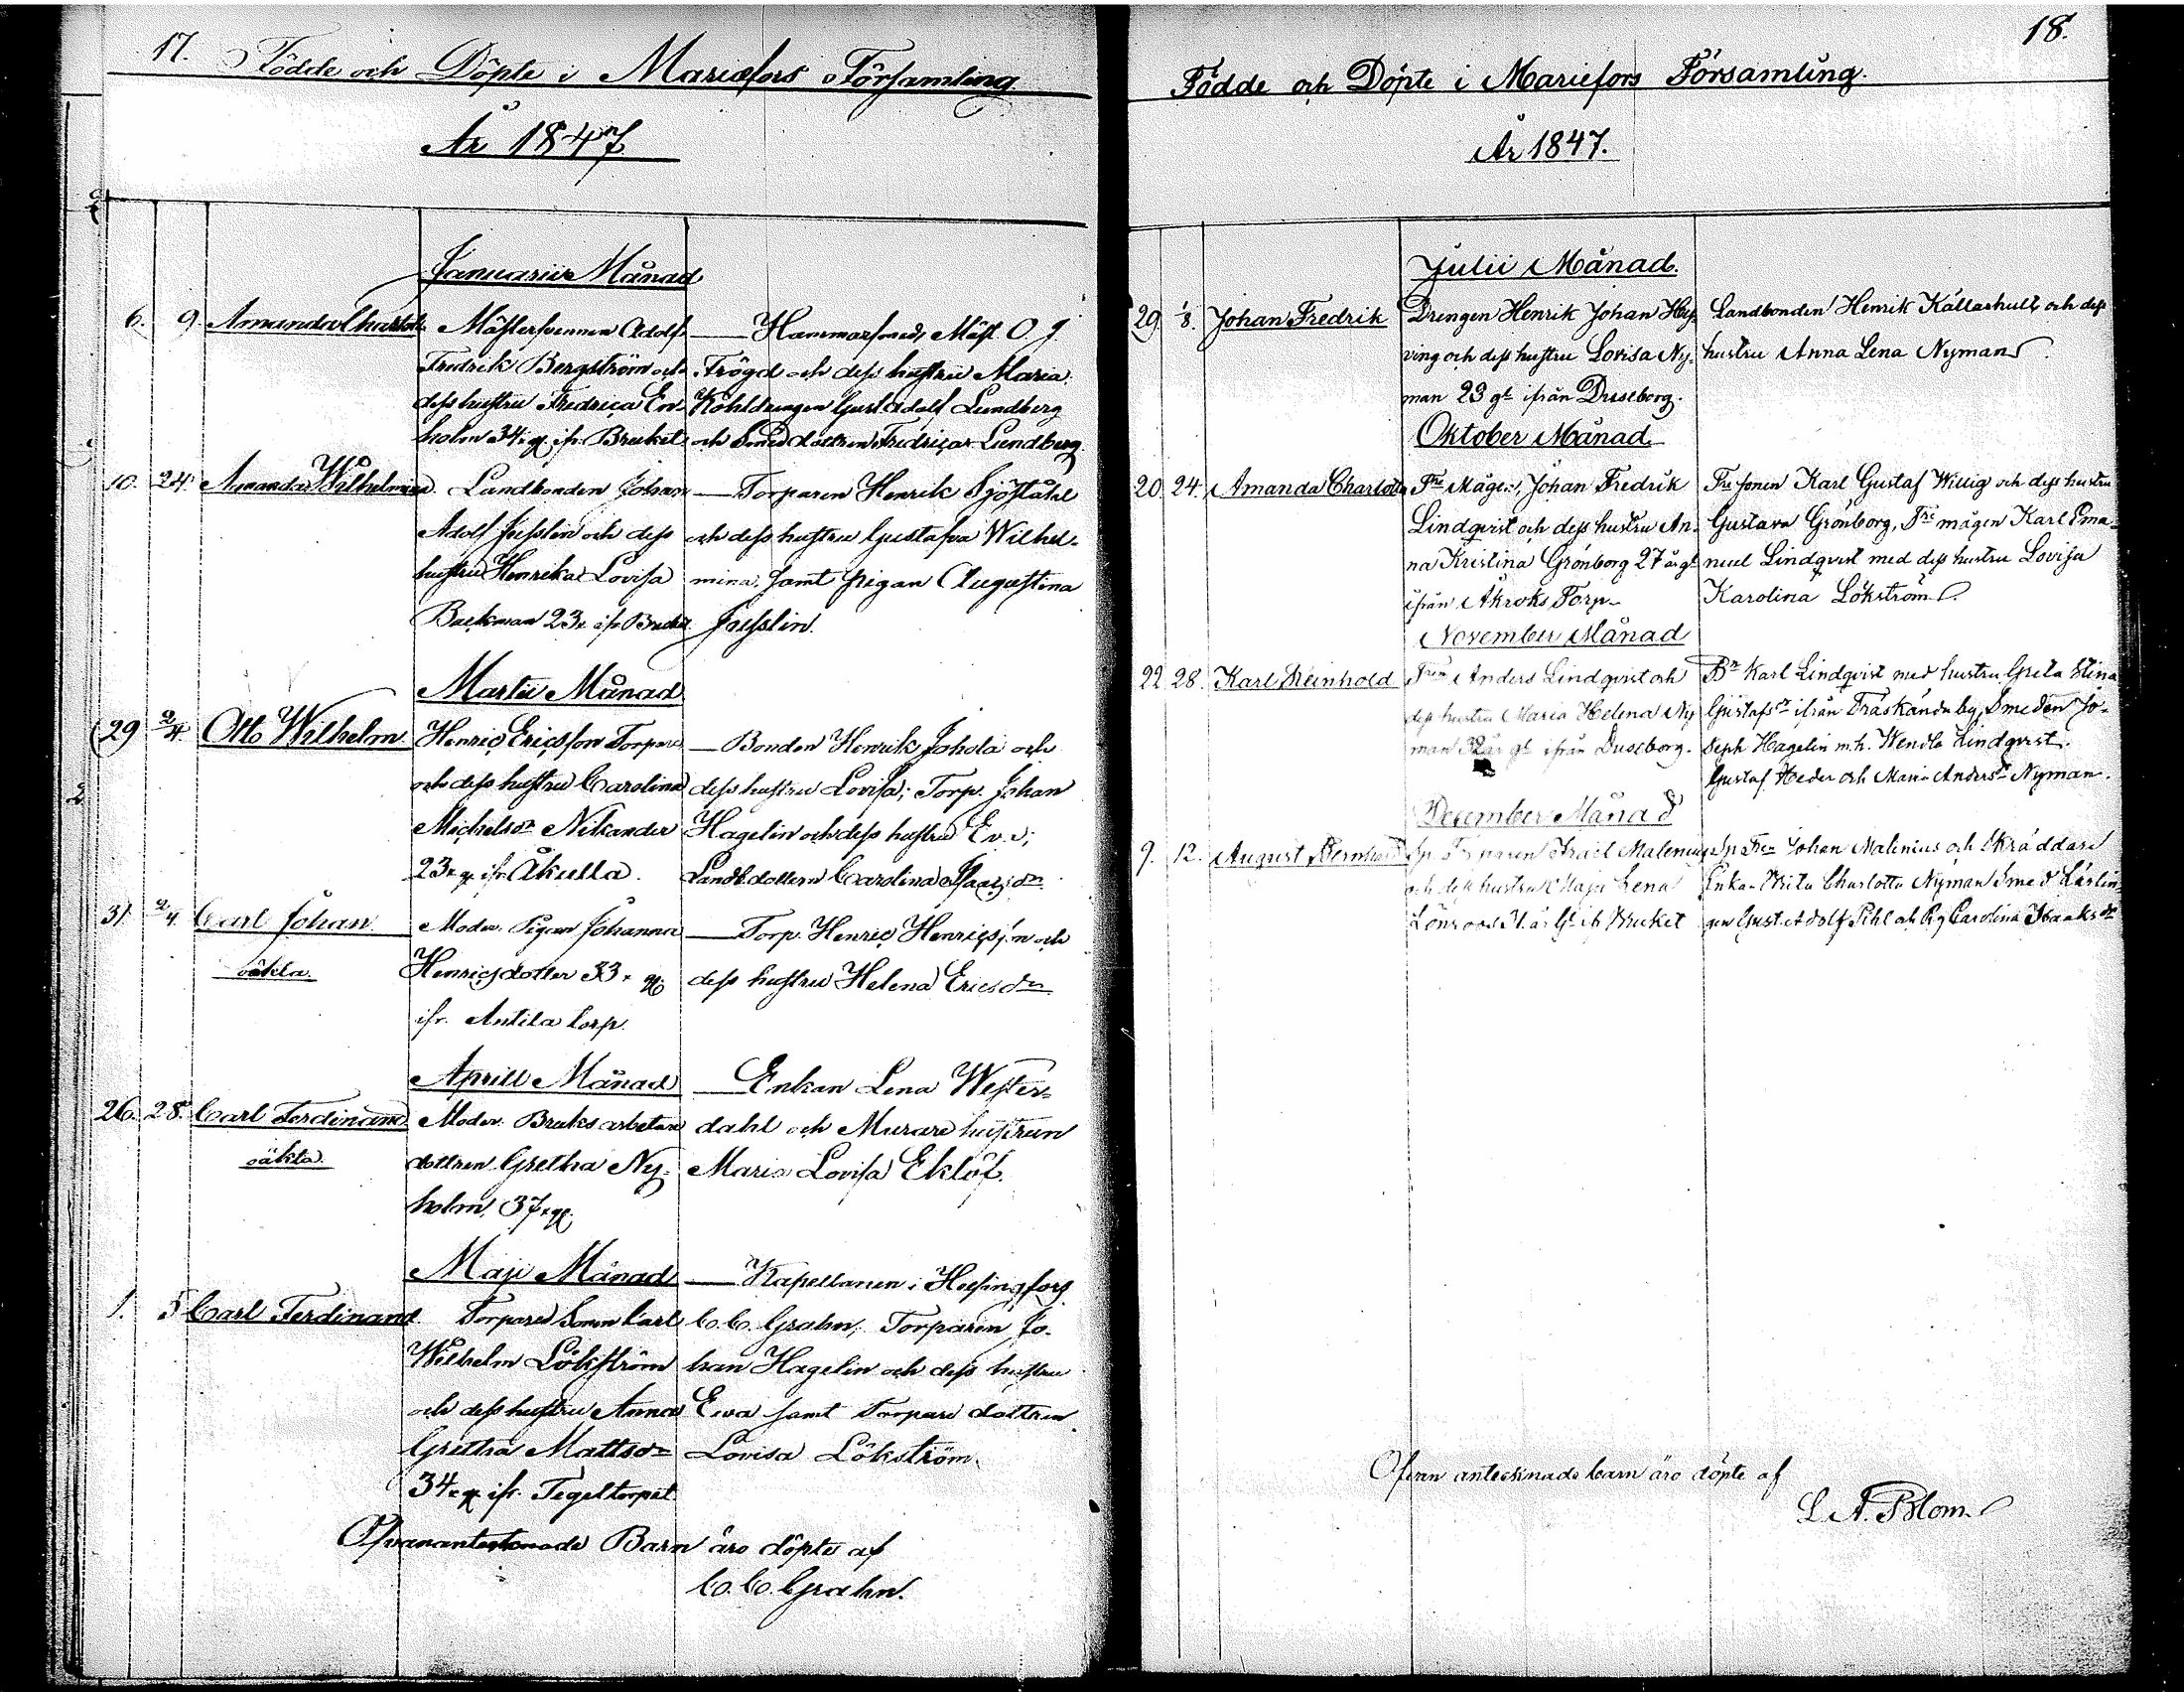 17. Födde och Döpte i Mariefors Församling
År 1847
Januarii Månad
6. 9. Amanda Charlott Mästersvennen Adolf — Hammarsmed, Mäst. O. J.
Fredrik Bergström och Frögd och dess hustru Maria.
dess hustru Fredrica En- Kohldrengen Gust Adolf Lundberg
holm 34 ifr. Bruket och Smeddottren Fredrica Lundberg
10. 24. Amanda Wilhelmina. Landbonden Johan — Torparen Henrik Sjöståhl
Adolf och dess och dess hustru Gustafva Wilhel-
hustru Henrika Lovisa mina, samt pigan Augustina
Backman 23 ifr Bruket
Martii Månad
29 2/4 Otto Wilhelm. Henric Ericsson Torpare — Bonden Henrik Johola och
och dess hustru Carolina dess hustru Lovisa; Torp. Johan
Michelsdr Nikander Hagelin och dess hustru Eva;
23 ifr. Åkulla. Landb.dottern Carolina Isacsdr
31. 2/4. Carl Johan Moder. Pigan Johanna — Torp. Henric Henricsson och
oäkta. Henricsdotter 33 dess hustru Helena Ericsdr
ifr. Antila torp.
Aprill Månad — Enkan Lena Wester-
26. 28. Carl Ferdinand Moder. Bruks arbetare dahl och Murare hustrun
oäkta. dottren Gretha Ny- Maria Lovisa Eklöf.
holm, 37
Maji Månad — Kapellanen i Helsingfors
1. 5 Carl Ferdinand. Torpare Sonen Carl C. C. Grahn, Torparen Jo-
Wilhelm Lökström han Hagelin och dess hustru
och dess hustru Anna Eva samt Torpare dottren
Gretha Mattsdr Lovisa Lökström.
34 ifr. Tegeltorpet.
Ofvanantecknade Barn äro döpte af
C. C. Grahn.
18.
Födde och Döpte i Mariefors Församling.
År 1847.
Julii Månad.
29. 1/8. Johan Fredrik Drengen Henrik Johan Landbonden Henrik Källarhult och dess
ving och dess hustru Lovisa Ny- hustru Anna Lena Nyman
man 23 gl ifrån Duseborg.
Oktober Månad
20. 24. Amanda Charlotta Måg. Johan Fredrik sonen Karl Gustaf Willig och dess hustru
Lindqvist och dess hustru An- Gustava Grönborg, mågen Karl Ema-
na Kristina Grönborg 27 år gl nuel Lindqvist med dess hustru Lovisa
ifrån Åkroks Torp. Karolina Lökström
November Månad
22. 28. Karl Reinhold Anders Lindqvist och Karl Lindqvist med hustru Greta Stina
dess hustru Maria Helena Ny- Gustafsdr ifrån Träskända by, Smeden Jo-
man 32 år gl ifrån Duseborg. seph Hagelin m.h. Wendla Lindqvist.
Gustaf Heder och Maria Andersdr Nyman.
December Månad
9. 12. August Bernhard Torparen Malenius Johan Malinius och Skräddare
och dess hustru Maja Lena Enkan Brita Charlotta Nyman Smed Lärlin-
år Gl ifr Bruket gen Gust. Adolf Pihl och Pig Carolina Isaaksdr
Ofvan antecknade barn äro döpte af
L. A. Blom.